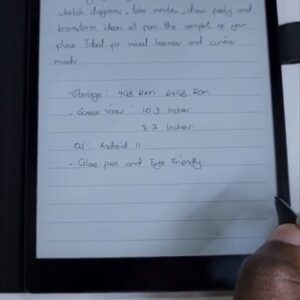 sketch diagrams, take notes, draw freely and
brainstorm ideas all from the comfort of your
place. Ideal for visual learners and curious
minds
Storage: 4GB RAM 64GB Rom
- Screen views: 10.3 Inches
8.2 Inches
OS: Android 11
- Glare-free and Eye Friendly.